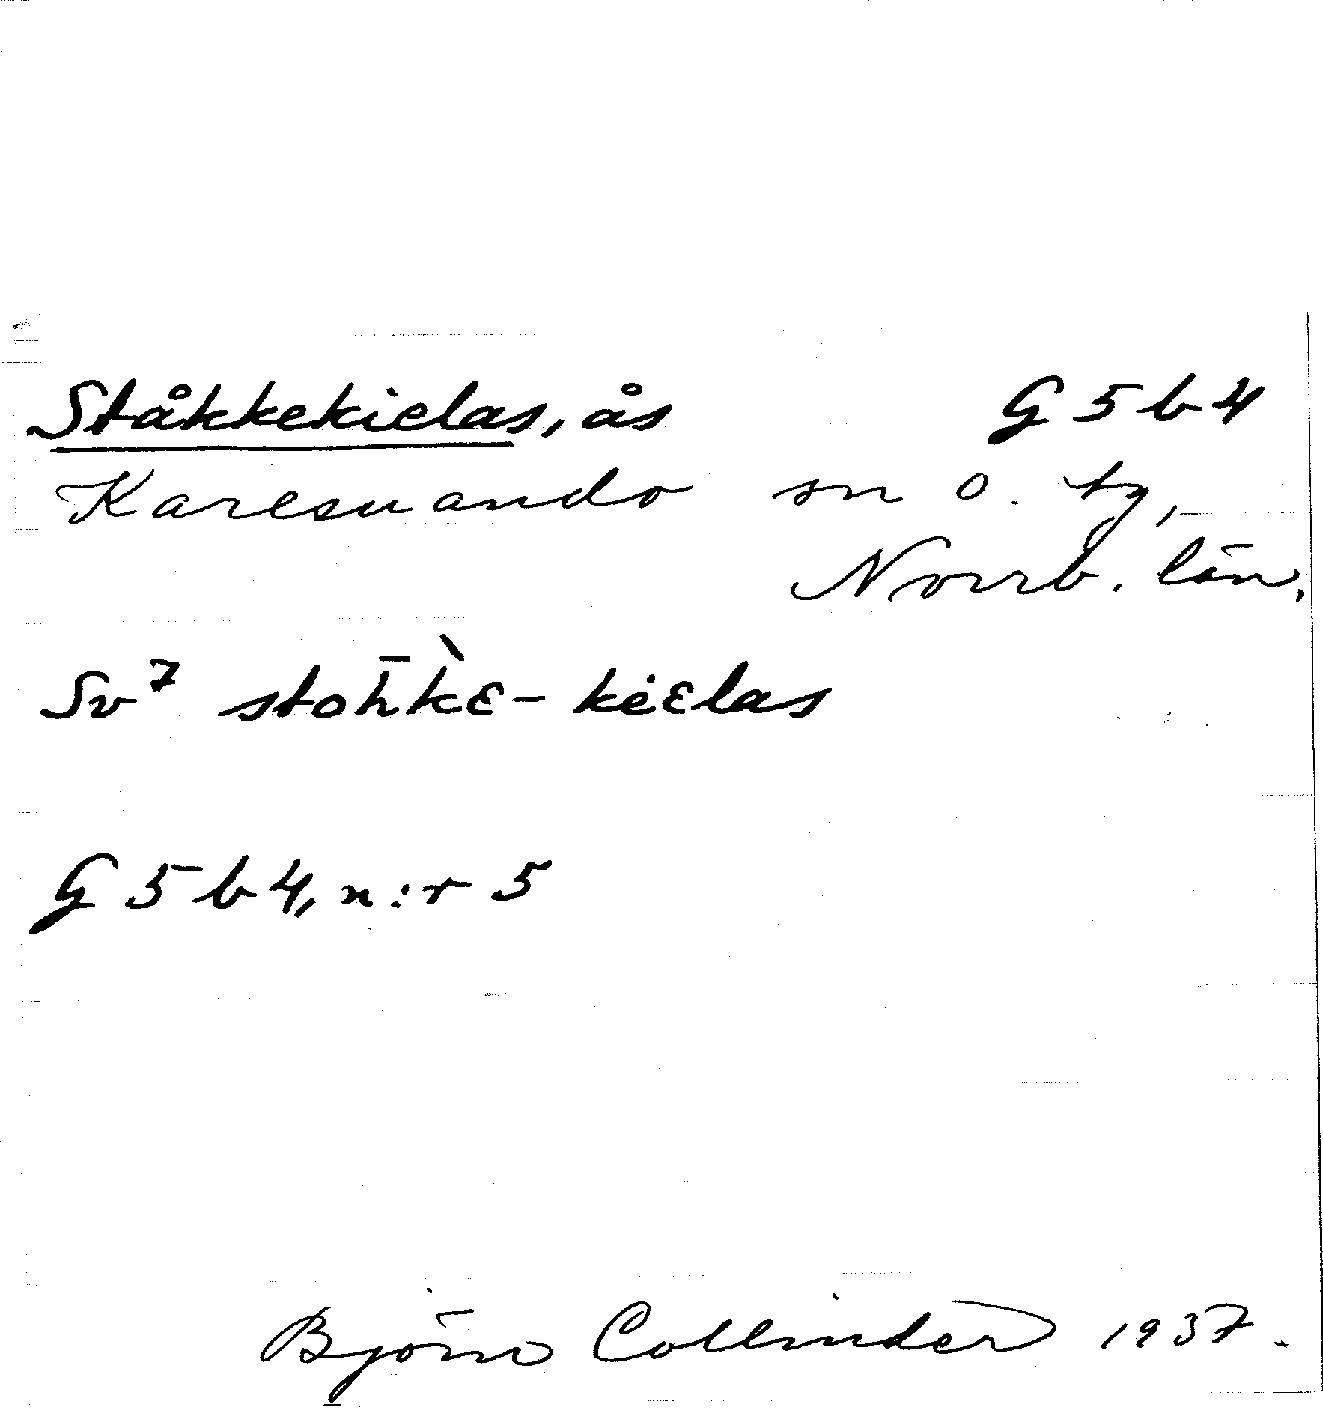 Ståkkekielas, ås G 5 b 4
Karesuando sn o. tg,
Norrb. län.
Sv⁷ stoh̄k̀ɛ - kėɛlas
G 5 b 4, n:r 5
Björn Collinder 1937.